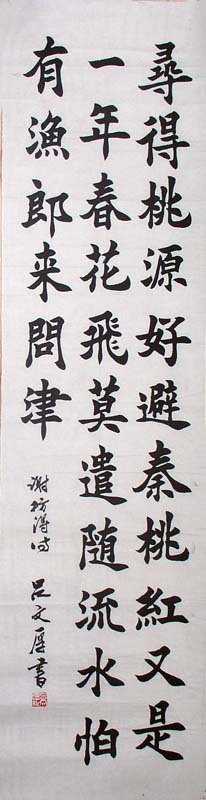 尋得桃源好避秦桃紅又是
一年春花飛莫遣随流水怕
有漁郎来問津
谢枋得诗
吕文厚書